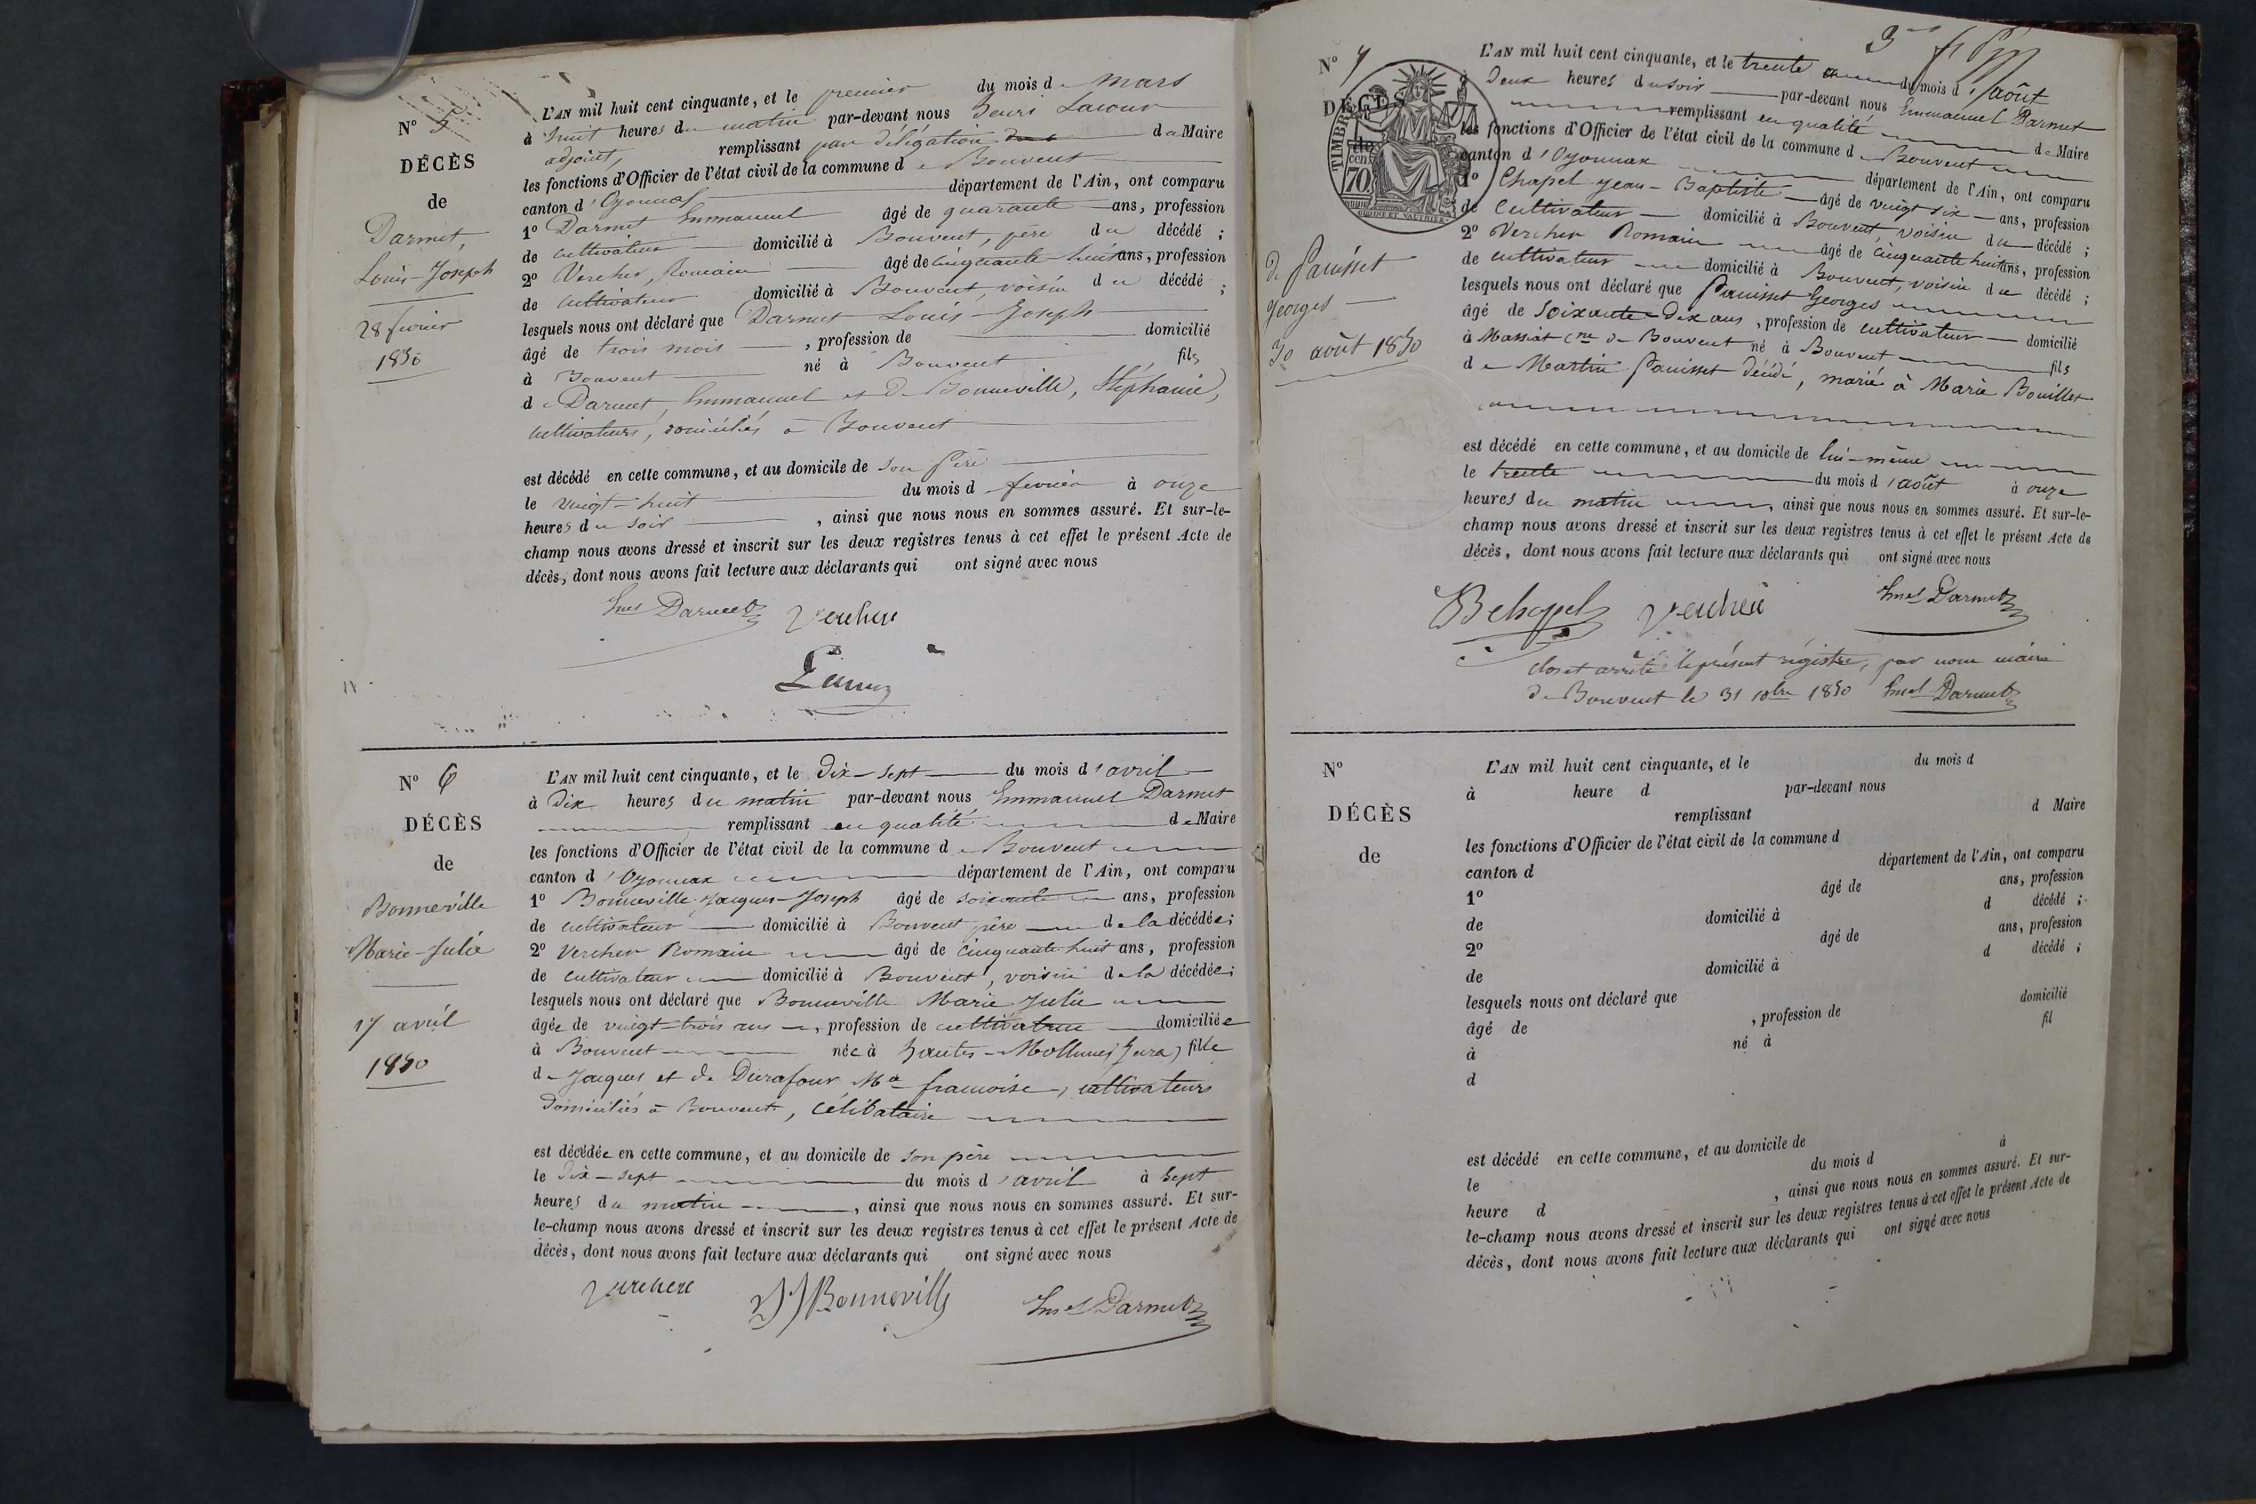 N° 5
DÉCÈS
de
Darmet,
Louis-Joseph
28 fevrier
1850
L'AN mil huit cent cinquante, et le premier du mois de Mars
à huit heures du matin par-devant nous henri Lacour
adjoint, remplissant par délégation de Maire
les fonctions d'Officier de l'état civil de la commune de Bouvent
canton d'Oyonnax département de l'Ain, ont comparu
1° Darmet Emmanuel âgé de quarante ans, profession
de cultivateur domicilié à Bouvent, père du décédé ;
2° Vercher, Romain âgé de cinquante-huit ans, profession
de cultivateur domicilié à Bouvent, voisin du décédé ;
lesquels nous ont déclaré que Darmet Louis-Joseph
âgé de trois mois , profession de domicilié
à Bouvent né à Bouvent fils
de Darmet, Emmanuel et de Bonneville, Stéphanie,
cultivateurs, domiciliés à Bouvent
est décédé en cette commune, et au domicile de son père
le vingt-huit du mois de fevrier à onze
heures du soir , ainsi que nous nous en sommes assuré. Et sur-le-
champ nous avons dressé et inscrit sur les deux registres tenus à cet effet le présent Acte de
décès, dont nous avons fait lecture aux déclarants qui ont signé avec nous
Emel Darmet Verchere
N° 6
DÉCÈS
de
Bonneville
Marie-Julie
17 avril
1850
L'AN mil huit cent cinquante, et le dix-sept du mois d'avril
à dix heures du matin par-devant nous Emmanuel Darmet
remplissant en qualité de Maire
les fonctions d'Officier de l'état civil de la commune de Bouvent
canton d'Oyonnax département de l'Ain, ont comparu
1° Bonneville Jacques-Joseph âgé de soixante ans, profession
de cultivateur domicilié à Bouvent père de la décédée ;
2° Vercher Romain âgé de cinquante-huit ans, profession
de cultivateur domicilié à Bouvent, voisin de la décédée ;
lesquels nous ont déclaré que Bonneville Marie Julie
âgée de vingt-trois ans , profession de cultivatrice domiciliée
à Bouvent née à hautes-Mollunes (Jura) fille
de Jacques et de Durafour Ma francoise, cultivateurs
domiciliés à Bouvent, célibataire
est décédée en cette commune, et au domicile de son père
le dix-sept du mois d'avril à sept
heures du matin , ainsi que nous nous en sommes assuré. Et sur-
le-champ nous avons dressé et inscrit sur les deux registres tenus à cet effet le présent Acte de
décès, dont nous avons fait lecture aux déclarants qui ont signé avec nous
Verchere JJ Bonneville Emel Darmet
N° 7
DÉCÈS
TIMBRE
70
de Pauisset
georges
30 août 1850
L'AN mil huit cent cinquante, et le trente du mois d'août
à deux heures du soir par-devant nous Emmanuel Darmet
remplissant en qualité de Maire
les fonctions d'Officier de l'état civil de la commune de Bouvent
canton d'Oyonnax département de l'Ain, ont comparu
1° Chapel jean-Baptiste âgé de vingt six ans, profession
de cultivateur domicilié à Bouvent voisin du décédé ;
2° Vercher Romain âgé de cinquante huit ans, profession
de cultivateur domicilié à Bouvent, voisin du décédé ;
lesquels nous ont déclaré que Pauisset Georges
âgé de soixante-dix ans , profession de cultivateur domicilié
à Massiat Cne de Bouvent né à Bouvent fils
de Martin Pauisset décédé, marié à Marie Bouillet
est décédé en cette commune, et au domicile de lui-même
le trente du mois d'août à onze
heures du matin , ainsi que nous nous en sommes assuré. Et sur-le-
champ nous avons dressé et inscrit sur les deux registres tenus à cet effet le présent Acte de
décès, dont nous avons fait lecture aux déclarants qui ont signé avec nous
JB chapel Verchere Emel Darmet
clos et arrêté le présent régistre, par nous maire
de Bouvent le 31 10bre 1850 Emel Darmet
N°
DÉCÈS
de
L'AN mil huit cent cinquante, et le du mois d
à heure d par-devant nous
remplissant d Maire
les fonctions d'Officier de l'état civil de la commune d
canton d département de l'Ain, ont comparu
1° âgé de ans, profession
de domicilié à d décédé ;
2° âgé de ans, profession
de domicilié à d décédé ;
lesquels nous ont déclaré que
âgé de , profession de domicilié
à né à fil
d
est décédé en cette commune, et au domicile de
le du mois d à
heure d , ainsi que nous nous en sommes assuré. Et sur-
le-champ nous avons dressé et inscrit sur les deux registres tenus à cet effet le présent Acte de
décès, dont nous avons fait lecture aux déclarants qui ont signé avec nous